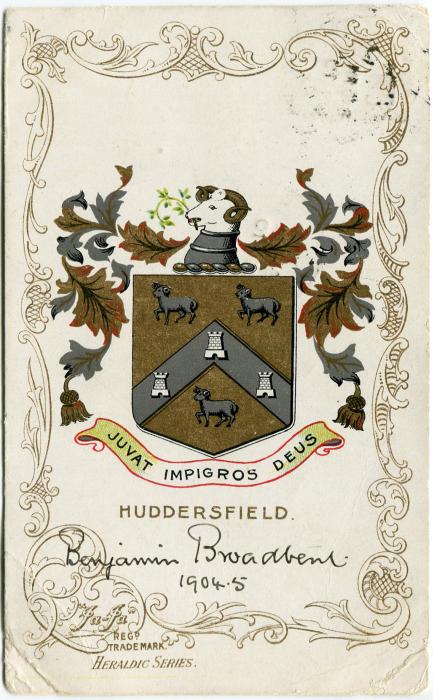 JUVAT IMPIGROS DEUS
HUDDERSFIELD.
Benjamin Broadbent.
1904-5
REGD
TRADE MARK.
HERALDIC SERIES.